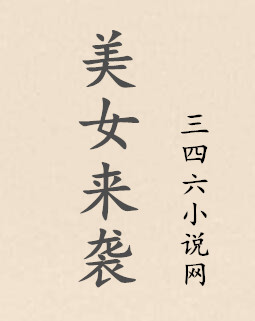 美女来袭
三四六小说网